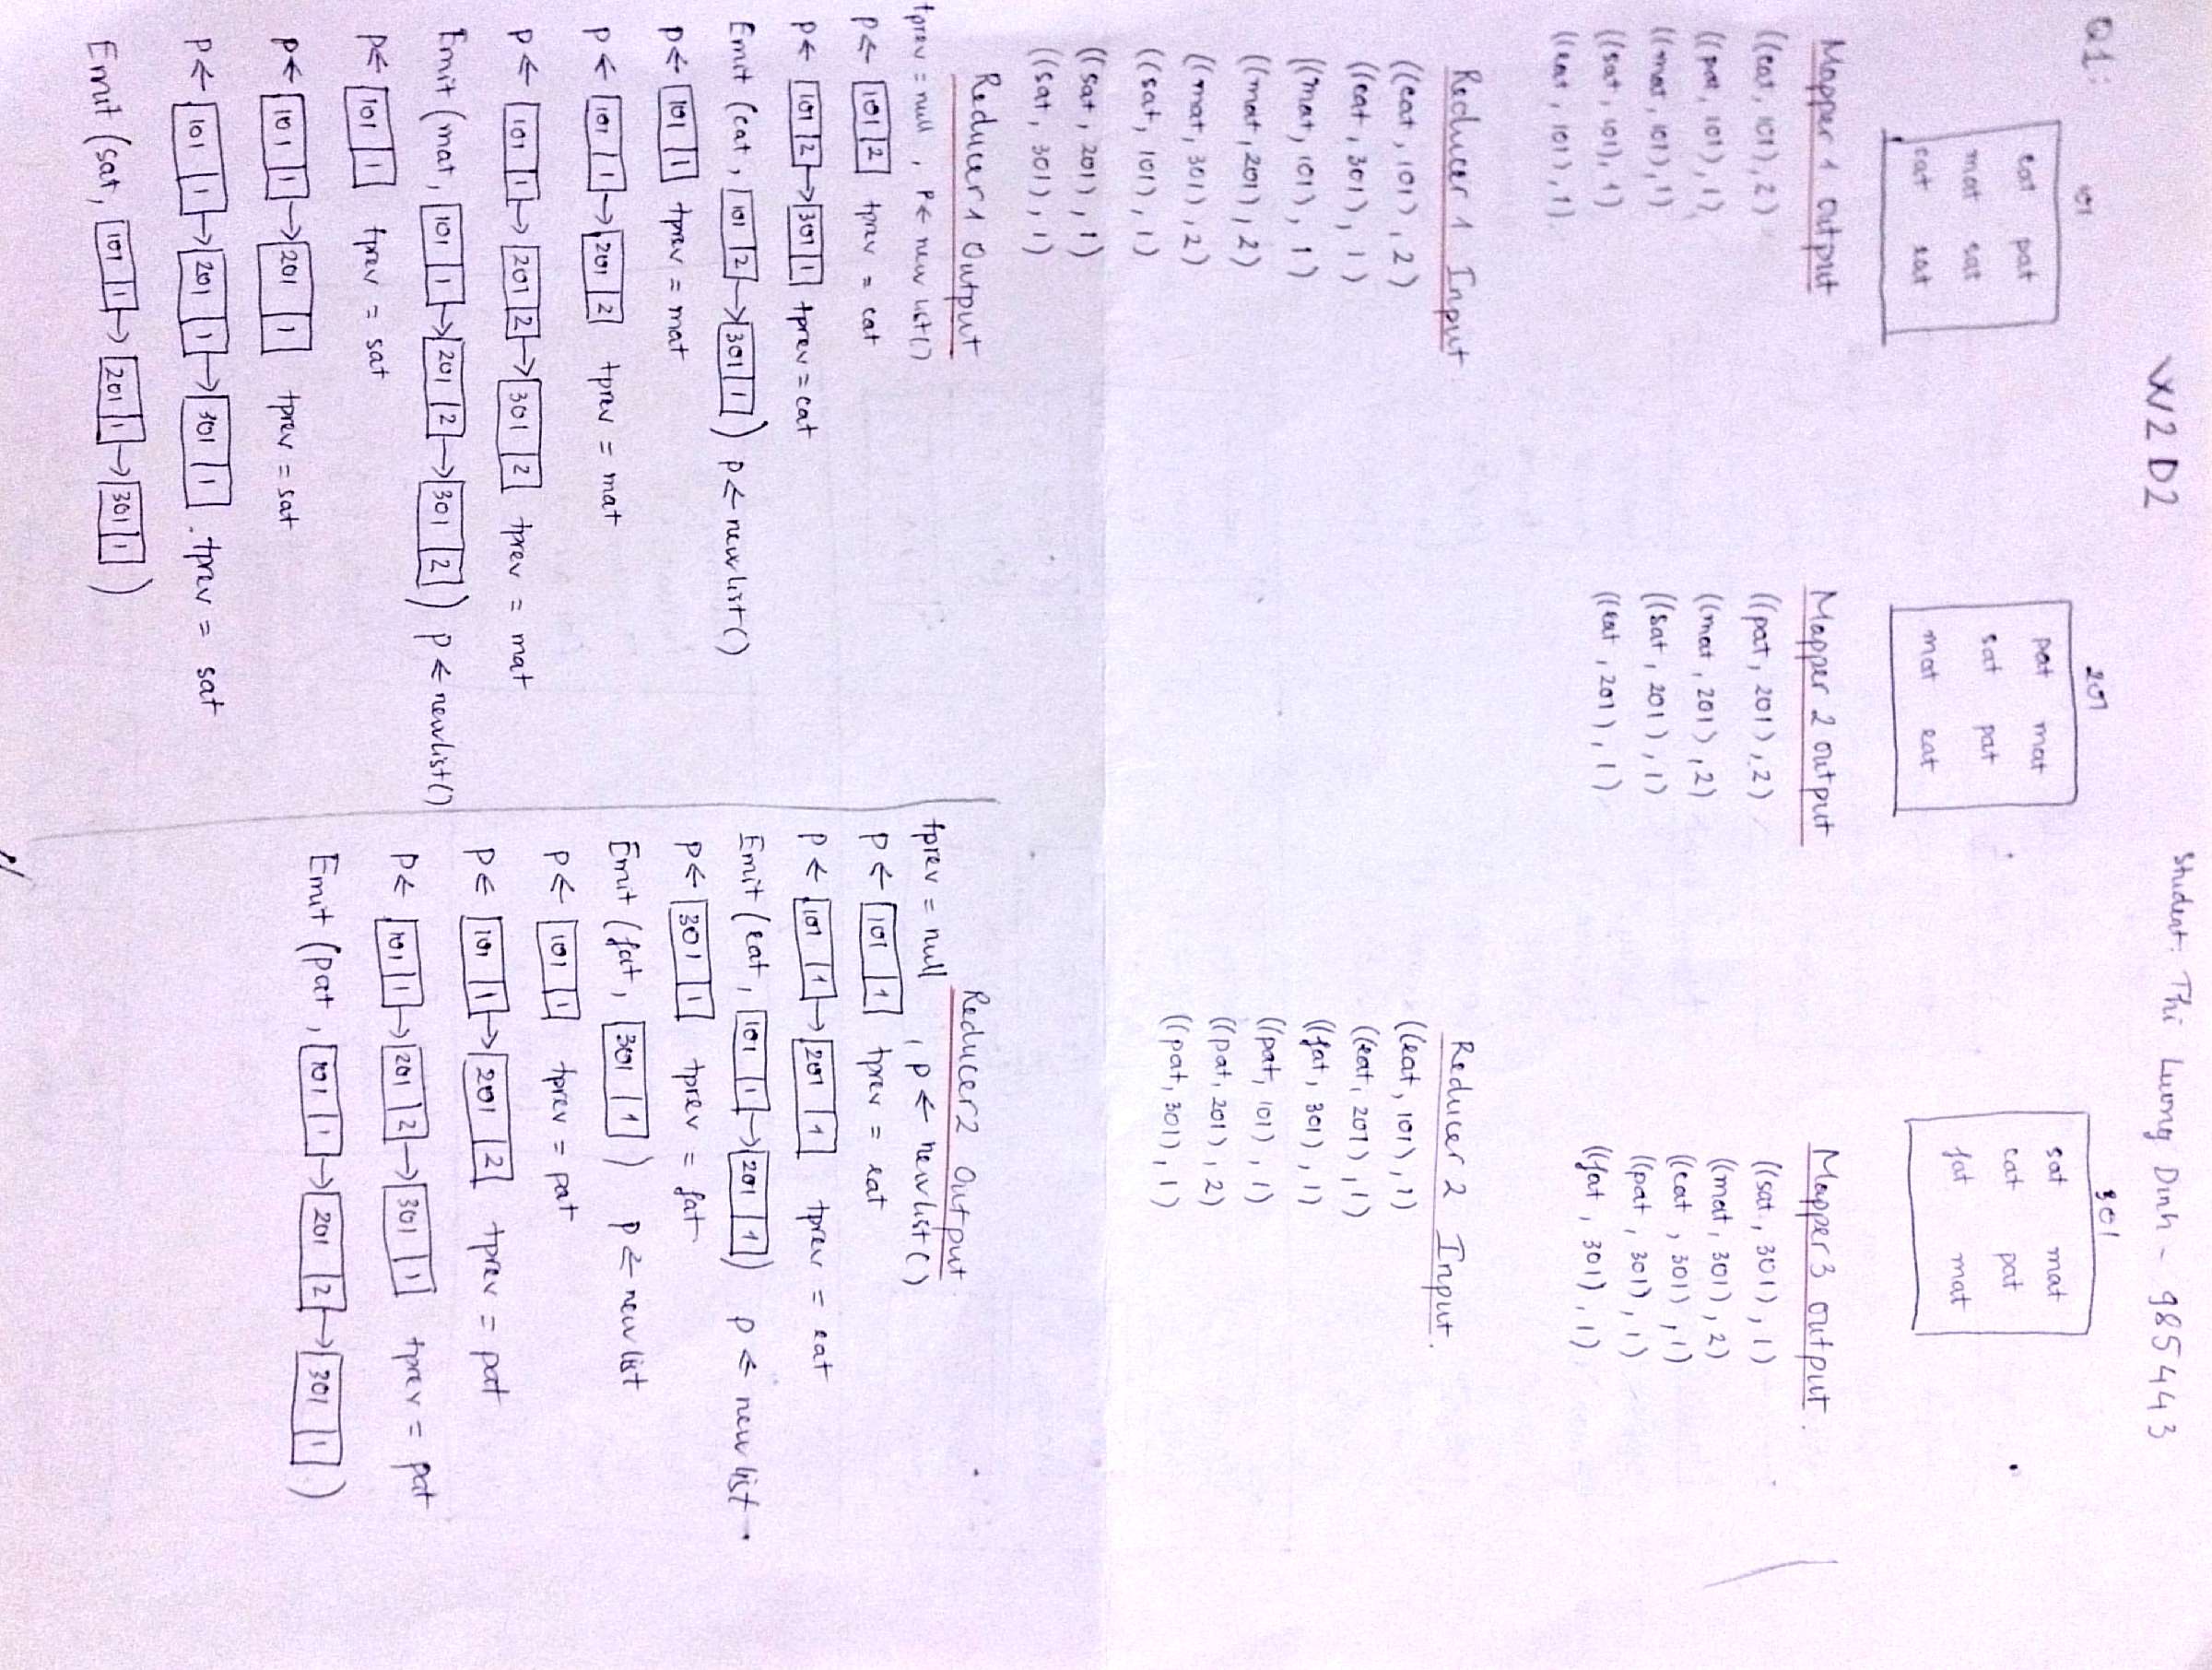 W2D2
Student: Thi Luong Dinh - 985443
Q1:
101
cat pat
mat sat
cat eat
201
pat mat
sat pat
mat eat
301
sat mat
cat pat
fat mat
Mapper 1 output
((cat, 101), 2)
((pat, 101), 1)
((mat, 101), 1)
((sat, 101), 1)
((eat, 101), 1)
Mapper 2 output
((pat, 201), 2)
((mat, 201), 2)
((sat, 201), 1)
((eat, 201), 1)
Mapper 3 output.
((sat, 301), 1)
((mat, 301), 2)
((cat, 301), 1)
((pat, 301), 1)
((fat, 301), 1)
Reducer 1 Input
((cat, 101), 2)
((cat, 301), 1)
((mat, 101), 1)
((mat, 201), 2)
((mat, 301), 2)
((sat, 101), 1)
((sat, 201), 1)
((sat, 301), 1)
Reducer 2 Input.
((eat, 101), 1)
((eat, 201), 1)
((fat, 301), 1)
((pat, 101), 1)
((pat, 201), 2)
((pat, 301), 1)
Reducer 1 Output
tprev = null, P ← new list()
P ← 101 2 tprev = cat
P ← 101 2 → 301 1 tprev = cat
Emit (cat, 101 2 → 301 1) P ← new list()
P ← 101 1 tprev = mat
P ← 101 1 → 201 2 tprev = mat
P ← 101 1 → 201 2 → 301 2 tprev = mat
Emit (mat, 101 1 → 201 2 → 301 2) P ← new list()
P ← 101 1 tprev = sat
P ← 101 1 → 201 1 tprev = sat
P ← 101 1 → 201 1 → 301 1 . tprev = sat
Emit (sat, 101 1 → 201 1 → 301 1)
Reducer 2 Output
tprev = null , P ← new list()
P ← 101 1 tprev = eat
P ← 101 1 → 201 1 tprev = eat
Emit (eat, 101 1 → 201 1) P ← new list
P ← 301 1 tprev = fat
Emit (fat, 301 1) P ← new list
P ← 101 1 tprev = pat
P ← 101 1 → 201 2 tprev = pat
P ← 101 1 → 201 2 → 301 1 tprev = pat
Emit (pat, 101 1 → 201 2 → 301 1)